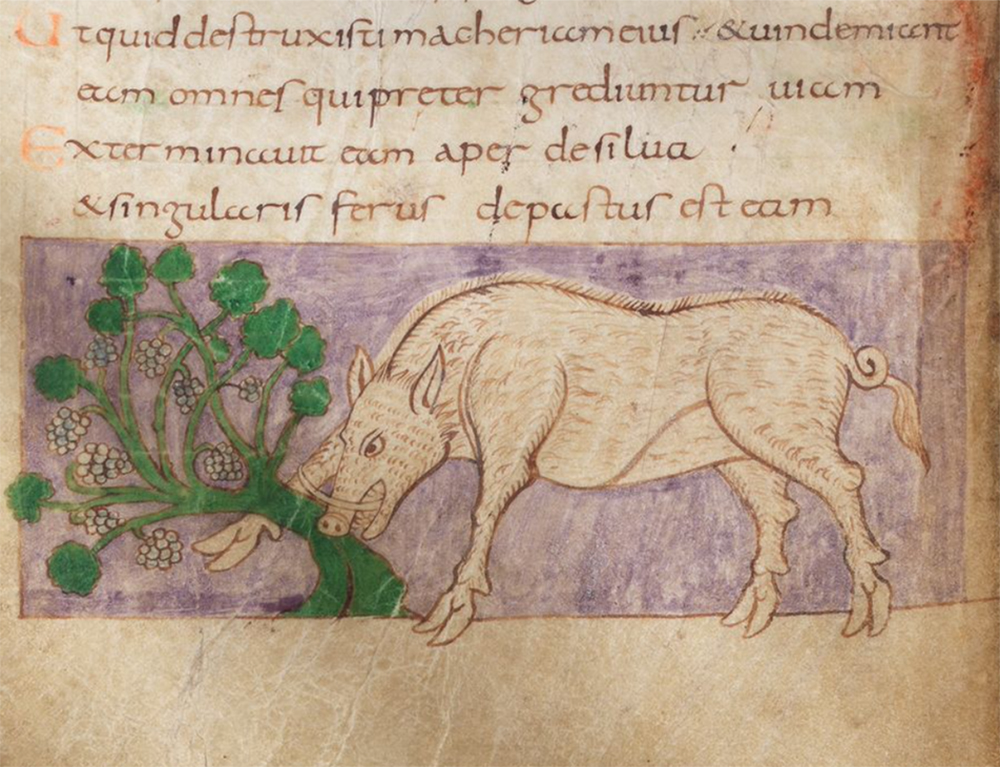 Ut quid destruxisti macheriam eius . & uindemiant
eam omnes qui preter grediuntur uiam
Exterminauit eam aper de silua .
& singularis ferus depastus est eam